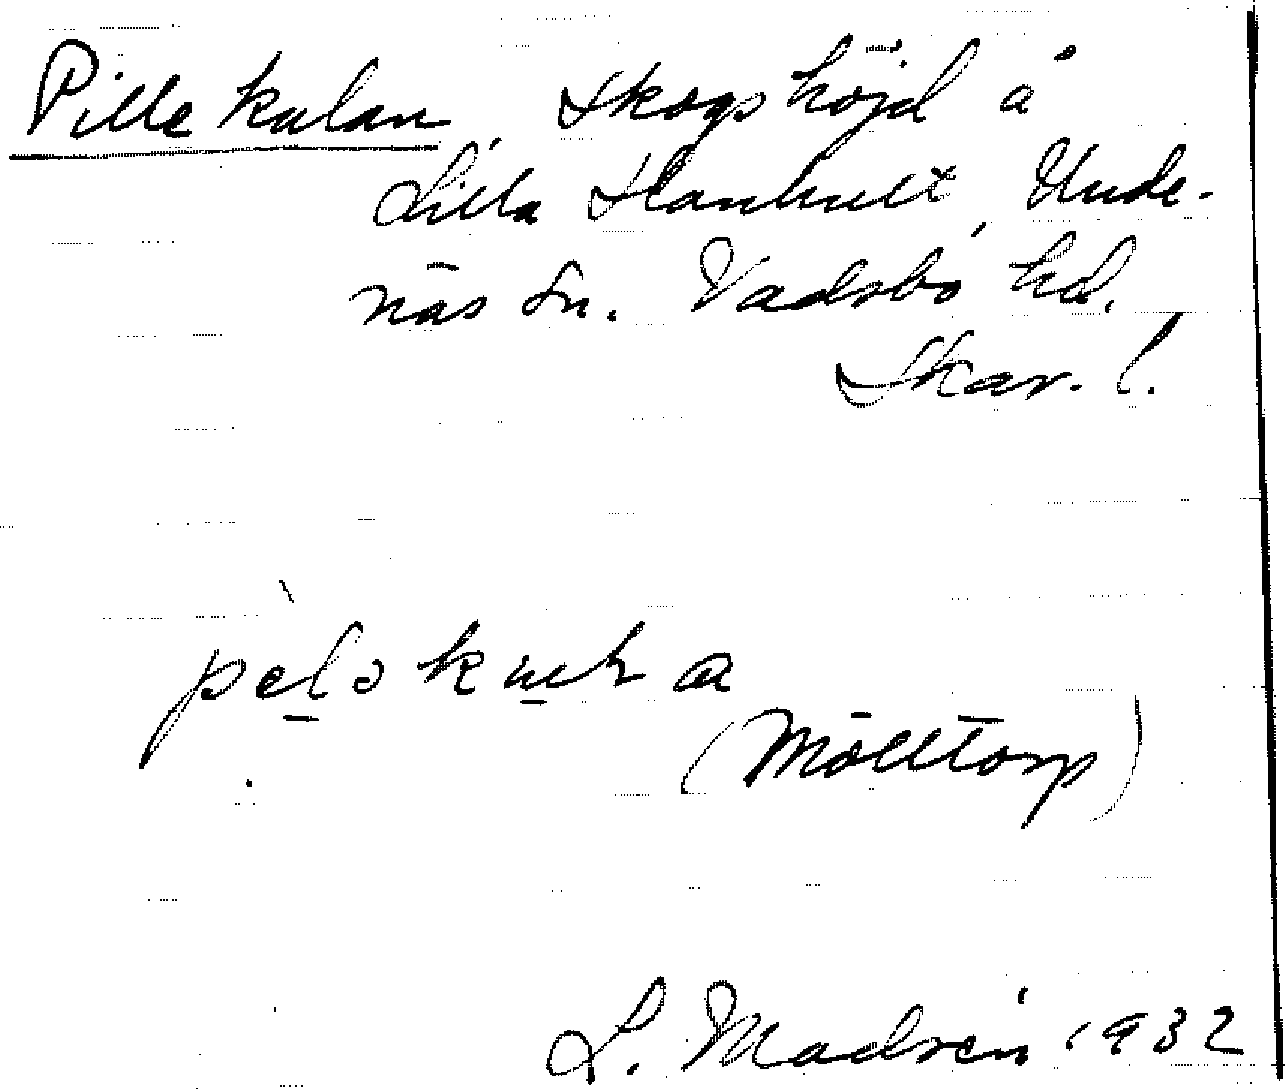 Pillekulan, Skogshöjd å
Lilla Stanhult, Unde-
näs Sn. Vadsbo hd.
Skar. l.
(Mölltorp)
L. Madsén 1932